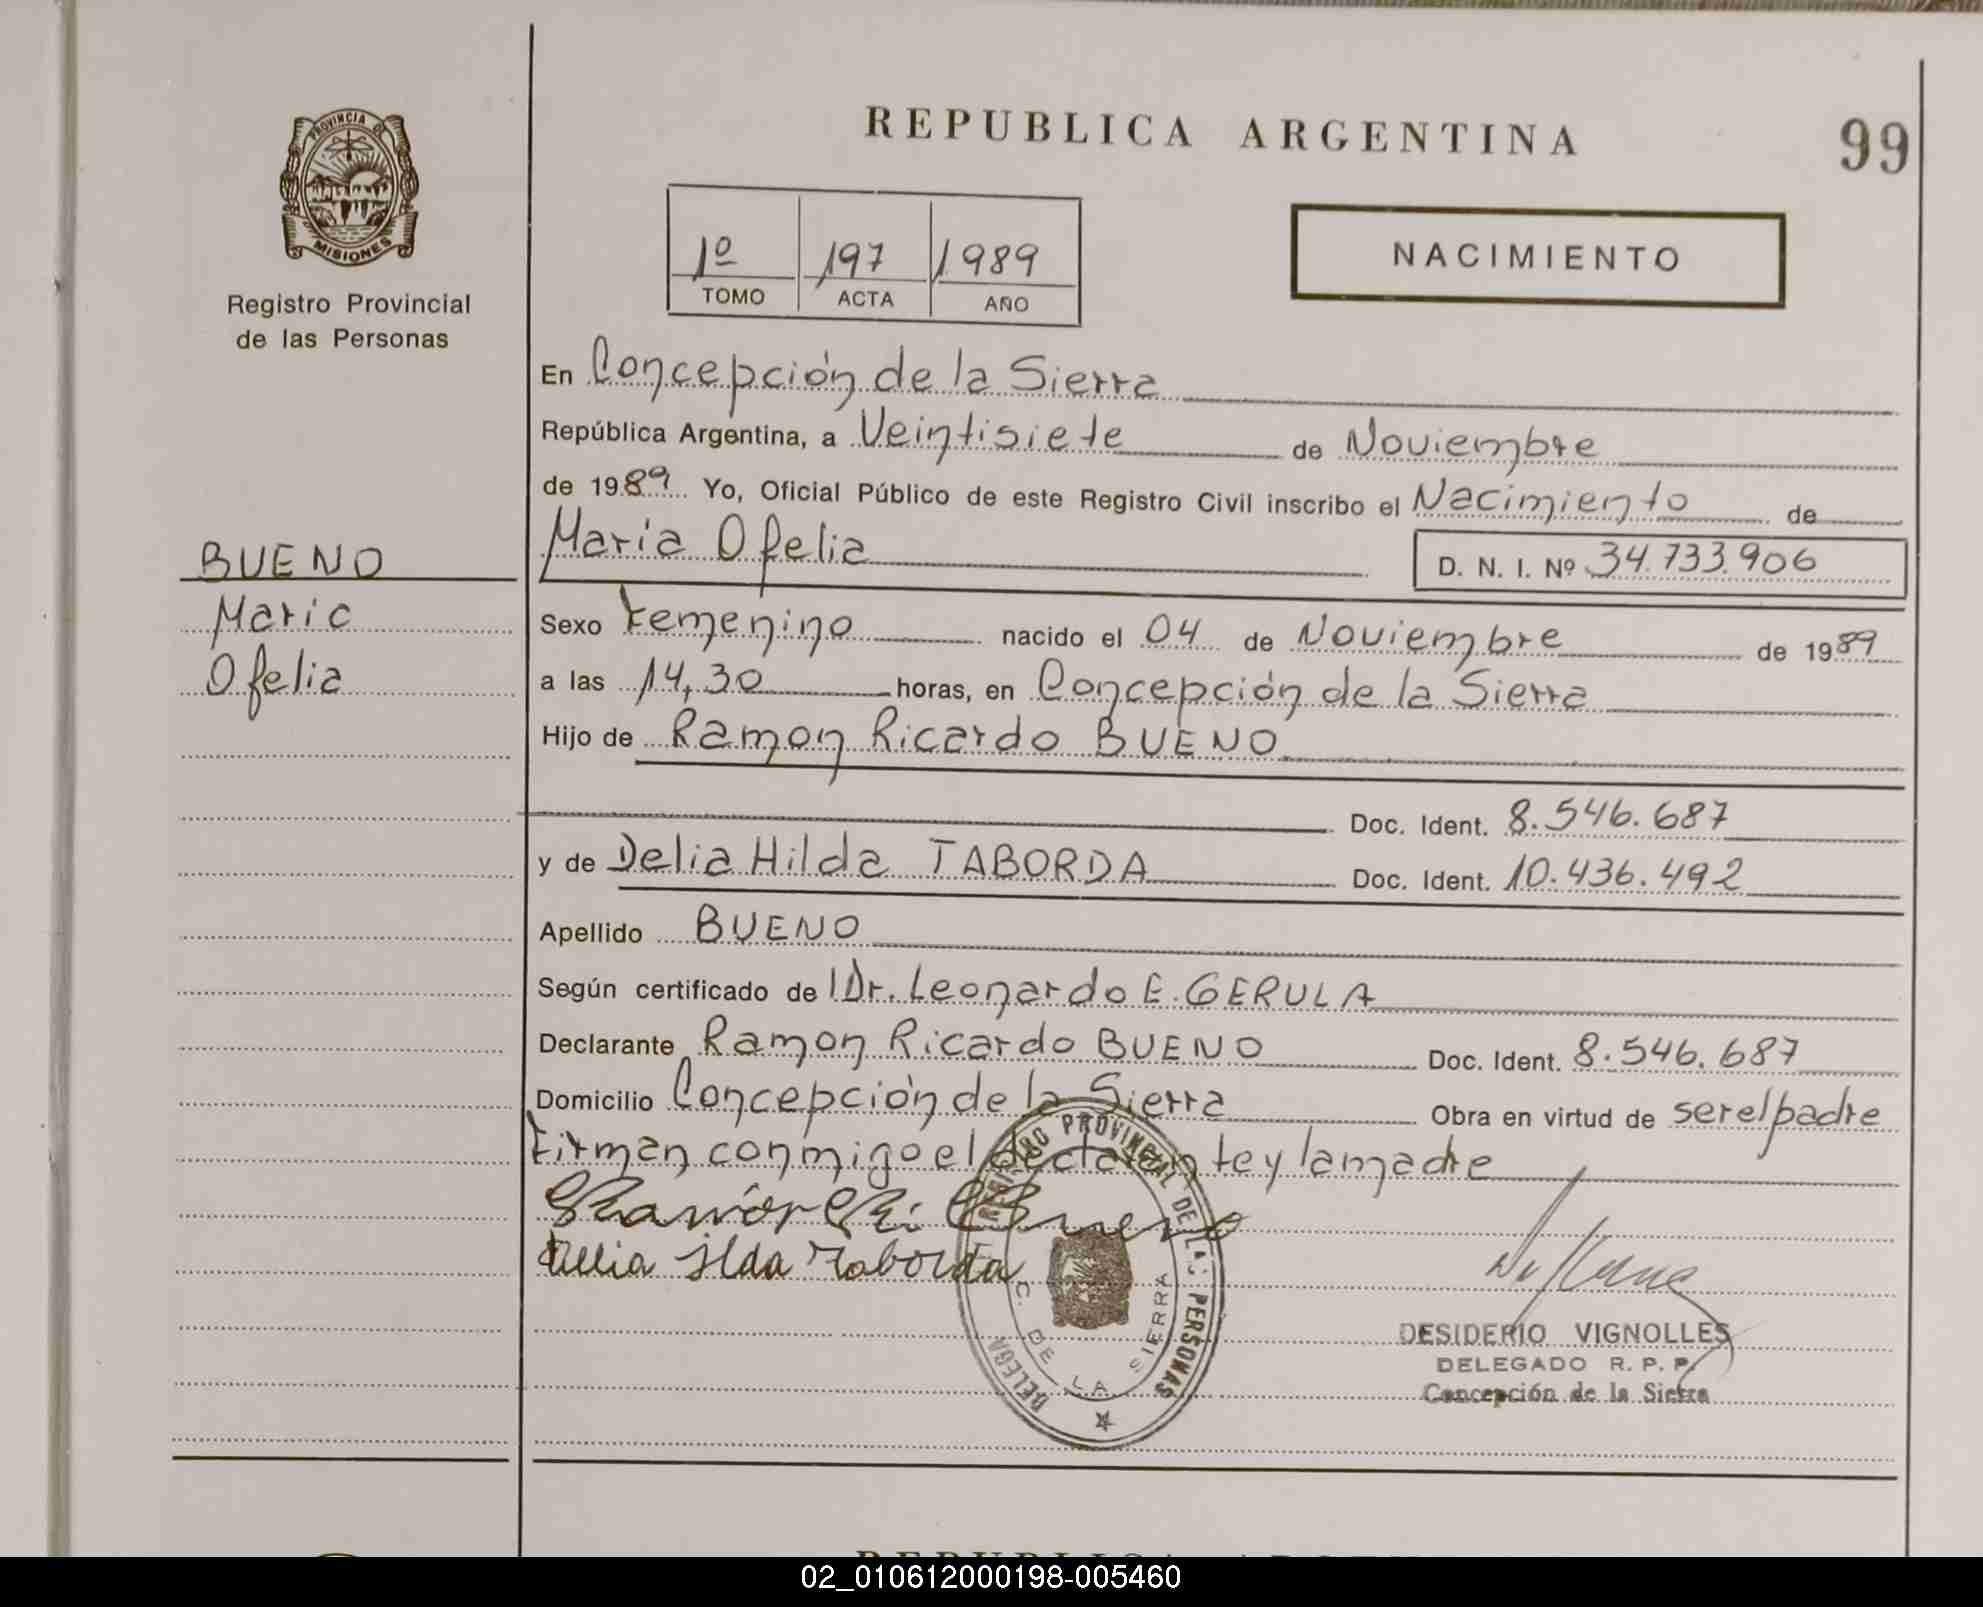 REPUBLICA ARGENTINA
99
PROVINCIA DE
MISIONES
Registro Provincial
de las Personas
1º 197 1989
TOMO ACTA AÑO
NACIMIENTO
En Concepción de la Sierra
República Argentina, a Veintisiete de Noviembre
de 1989 Yo, Oficial Público de este Registro Civil inscribo el Nacimiento de
Maria Ofelia
D. N. I. Nº 34.733.906
BUENO
Maria
Ofelia
Sexo Femenino nacido el 04 de Noviembre de 1989
a las 14,30 horas, en Concepción de la Sierra
Hijo de Ramon Ricardo BUENO
Doc. Ident. 8.546.687
y de Delia Hilda TABORDA Doc. Ident. 10.436.492
Apellido BUENO
Según certificado de Dr. Leonardo E. GERULA
Declarante Ramon Ricardo BUENO Doc. Ident. 8.546.687
Domicilio Concepción de la Sierra Obra en virtud de ser el padre
Firman conmigo el declarante y la madre
Ramón Ri Bueno
Delia ilda Taborda
REGISTRO PROVINCIAL DE LAS PERSONAS
DELEGA
C. DE LA SIERRA
DESIDERIO VIGNOLLES
DELEGADO R. P. P.
Concepción de la Sierra
REPUBLICA ARGENTINA
02_010612000198-005460